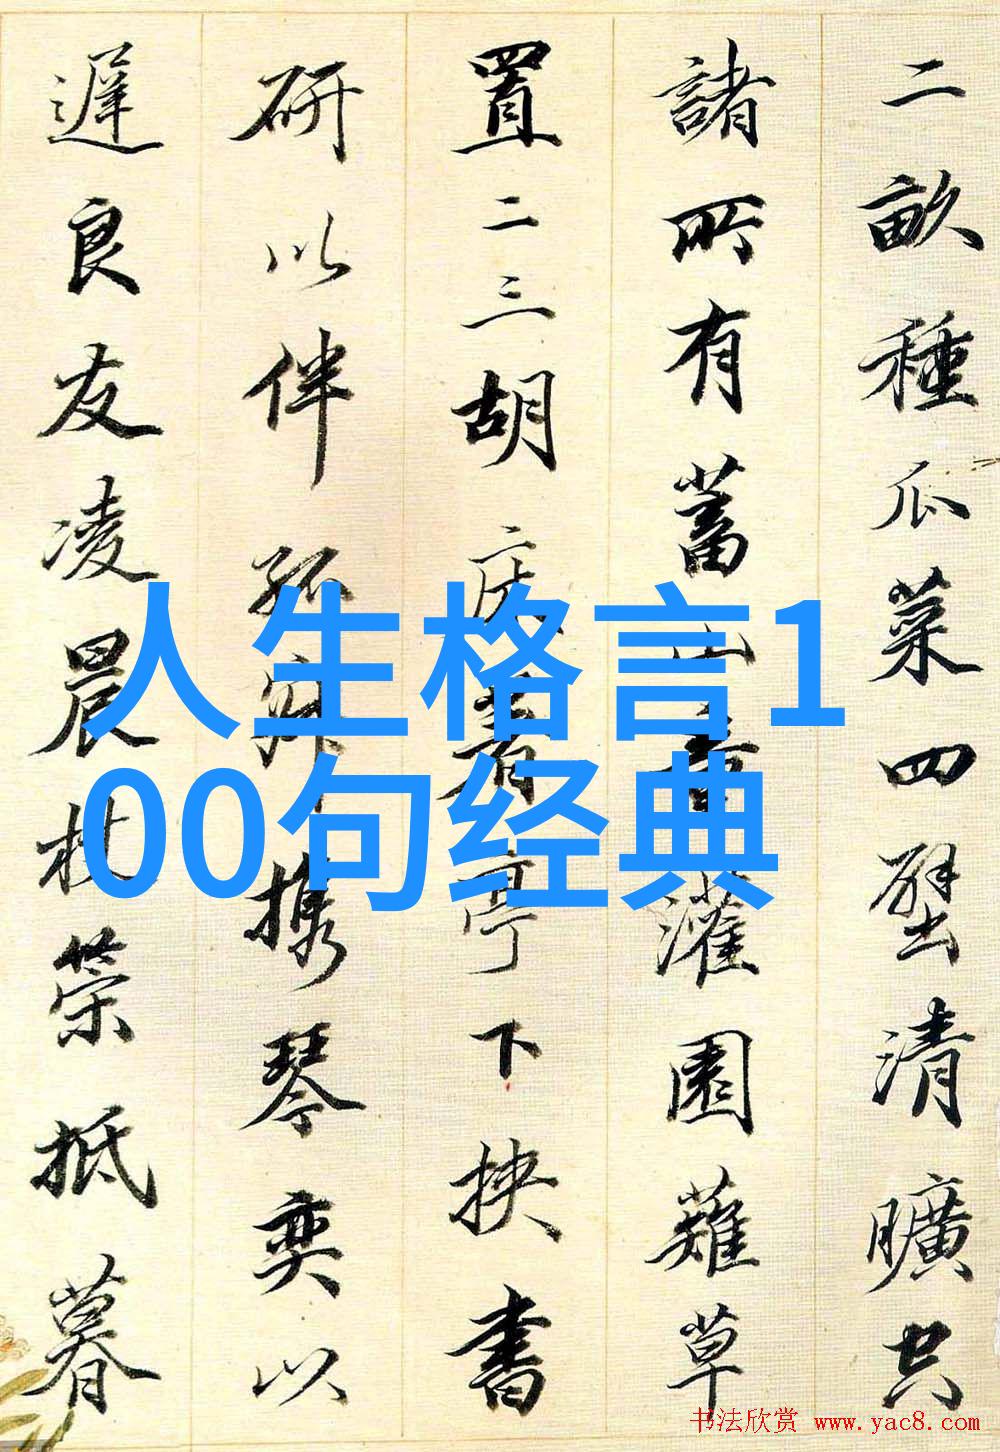 二畝種瓜菜四壁清曠空
諸所有蓄山童灌園薙草
置二三胡床著亭下挾書
研以伴孤寂攜琴奕以
遲良友凌晨杖策抵暮
人生格言1
00句经典
书法欣赏 www.yac8.com